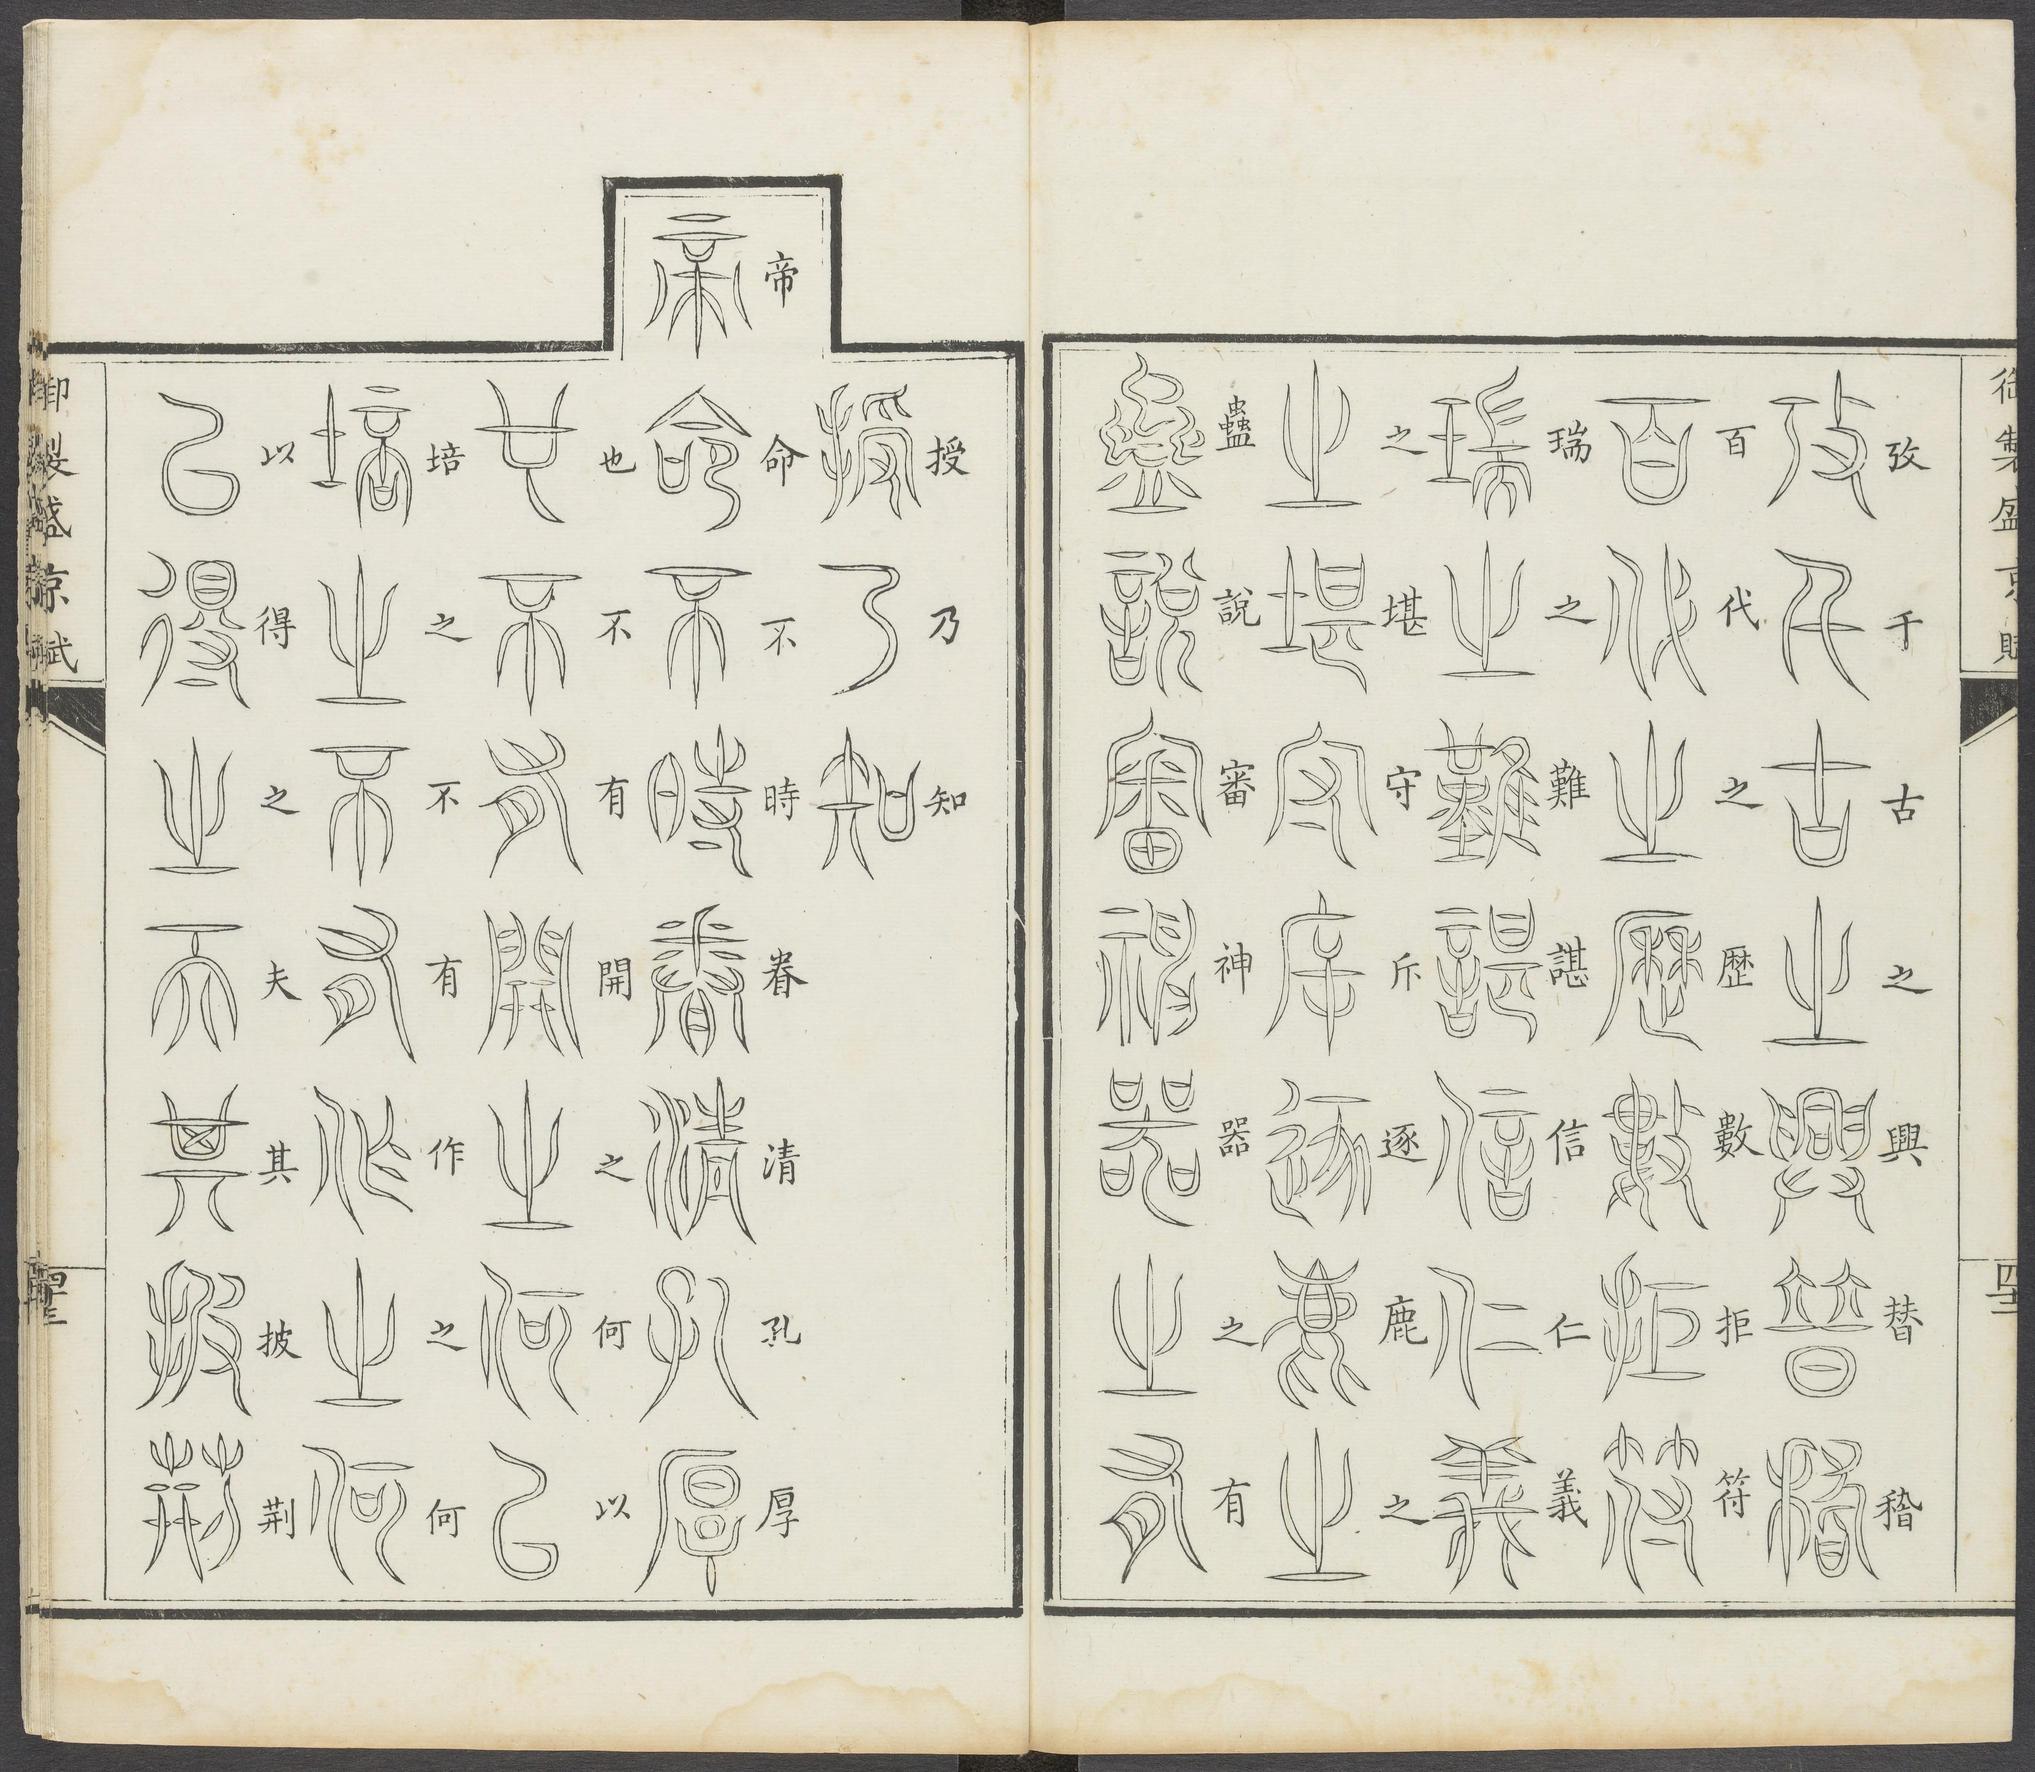 攷千古之興替稽
百代之歴數拒符
瑞之難諶信仁義
之堪守斥逐鹿之
蠱說審神器之有
授乃知
帝命不時眷清孔厚
也不有開之何以
培之不有作之何
以得之夫其披荆
御製盛京賦
御製盛京賦